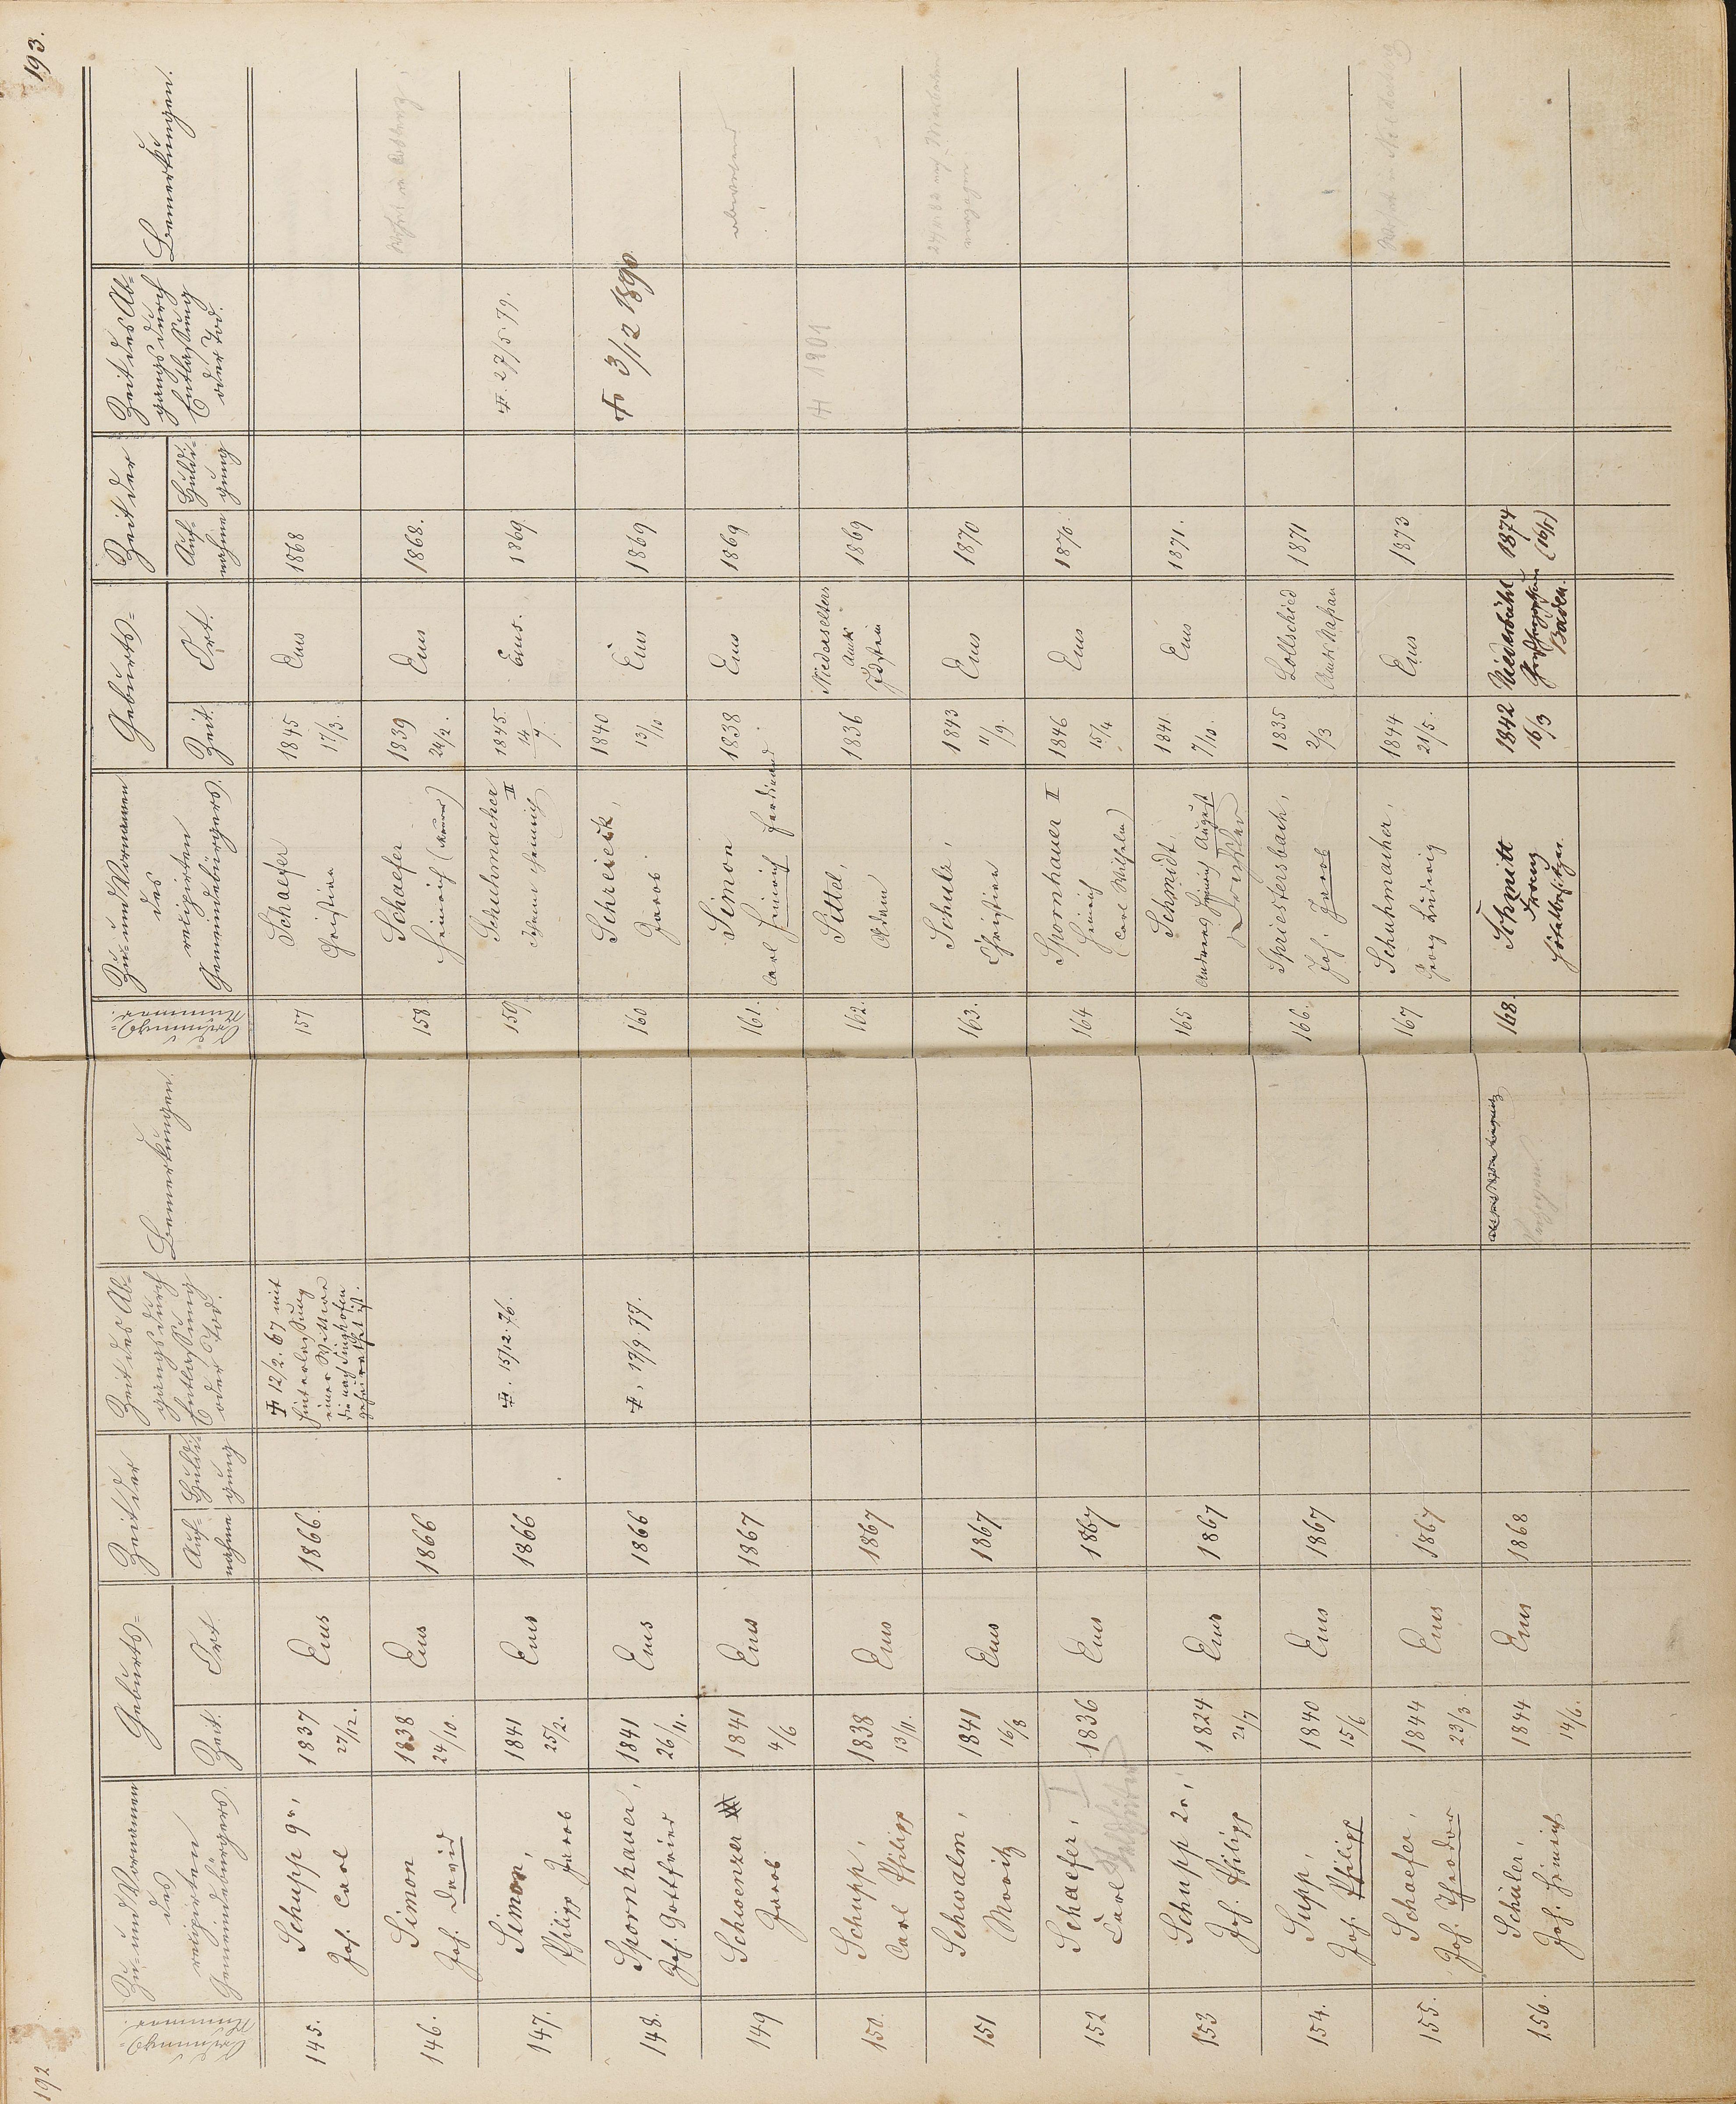 192
Ordnungs-
Nummer.
Zu- und Vornamen
des
recipirten
Gemeindebürgers.
Geburts-
Zeit.
Ort.
Zeit der
Auf-
nahme
Huldi-
gung
Zeit des Ab-
gangs durch
Entlassung
oder Tod.
Bemerkungen.
145.
Schupp 9r,
Joh. Carl
1837
27/12.
Ems
1866.
† 12/2. 67 mit
Hinterlassung
einer Wittwe
die nach Singhofen
geheirathet ist.
146.
Simon
Joh. David
1838
24/10.
Ems
1866
147.
Simon,
Philipp Jacob
1841
25/2.
Ems
1866
†. 15/12. 76.
148.
Spornhauer,
Joh. Gottfried
1841
26/11.
Ems
1866
†, 17/9. 77.
149
Schwenzer
Jacob
1841
4/6
Ems
1867
150.
Schupp,
Carl Philipp
1838
13/11.
Ems
1867
151
Schwalm,
Moritz
1841
16/8
Ems
1867
152
Schaefer, I
Carl
1836
Ems
1867
153
Schupp 2r,
Joh. Philipp
1824
21/7
Ems
1867
154.
Supp,
Joh. Philipp
1840
15/6
Ems
1867
155.
Schaefer,
Joh. Theodor
1844
23/3.
Ems
1867
156.
Schüler,
Joh. Heinrich
1844
14/6.
Ems
1868
193.
Ordnungs-
Nummer.
Zu- und Vornamen
des
recipirten
Gemeindebürgers.
Geburts-
Zeit.
Ort.
Zeit der
Auf-
nahme
Huldi-
gung
Zeit des Ab-
gangs durch
Entlassung
oder Tod.
Bemerkungen.
157
Schaefer
Christian
1845
17/3.
Ems
1868
158.
Schaefer
Heinrich
1839
24/2.
Ems
1868.
159.
Schumacher II
Johann Heinrich
1845.
14/7.
Ems.
1869.
†. 27/5. 79.
160
Schreieck,
Jacob
1840
13/10
Ems
1869
† 3/12 1890.
161.
Simon
Carl Heinrich Ferdinand
1838
Ems
1869
162.
Sittel,
Adam
1836
Niederselters
Amt
Idstein
1869
† 1901
163.
Schulz,
Christian
1843
11/9.
Ems
1870
164
Spornhauer II
Heinrich
(Carl Wilhelm)
1846
15/4
Ems
1870.
165
Schmidt,
Andreas Heinrich August
1841.
7/10.
Ems
1871.
166.
Spriestersbach,
Joh. Jacob
1835
2/3
Lollschied
Amt Nassau
1871
167
Schuhmacher,
Georg Ludwig
1844
21/5.
Ems
1873
168.
Schmitt
Franz
Hotelbesitzer.
1842
16/3
Niederbühl
Großherzogthum
Baden.
1874